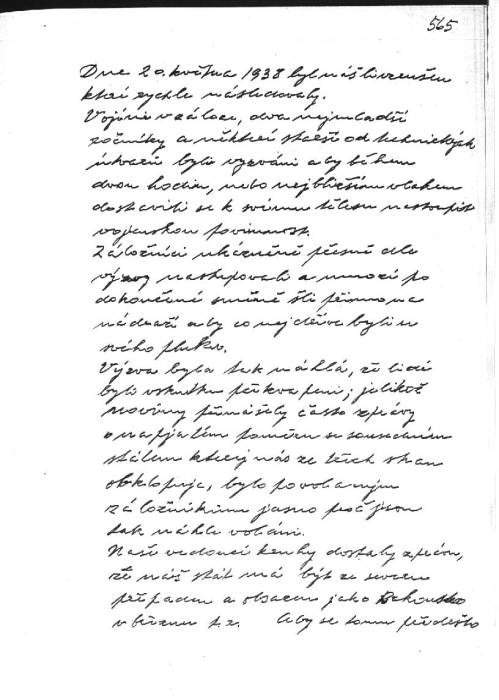 565
Dne 20. května 1938 byl náš
kteří rychle následovaly.
Vojíni v záloze, dva nejmladší
ročníky a někteří starší od technických
útvarů byli vyzváni aby během
dvou hodin, nebo nejbližším vlakem
dostavili se k svému tělesu nastoupit
vojenskou povinnost.
Záložníci ukázněně přesně dle
výzvy nastupovali a mnozí po
dokončené směně šli přímo na
nádraží aby co nejdříve byli u
svého pluku.
Výzva byla tak náhlá, že lidé
byli vskutku překvapeni; jelikož
noviny přinášely často zprávy
o napjatém poměru se sousedním
státem který nás ze třech stran
obklopuje, bylo povolaným
záložníkům jasno proč jsou
tak náhle voláni.
Naše vedoucí kruhy dostaly zprávu,
že náš stát má být ze severu
přepaden a obsazen jako Rakousko
v březnu t.r. Aby se tomu předešlo